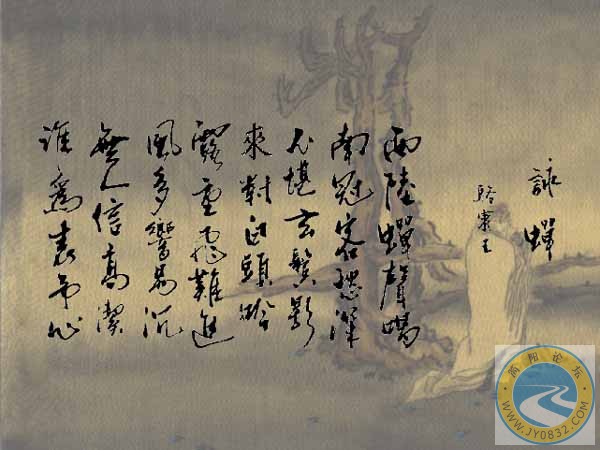 詠蟬
駱賓王
西陸蟬聲唱
南冠客思深
不堪玄鬢影
來對白頭吟
露重飛難進
風多響易沉
無人信高潔
誰為表予心
简阳论坛
WWW.JY0832.COM